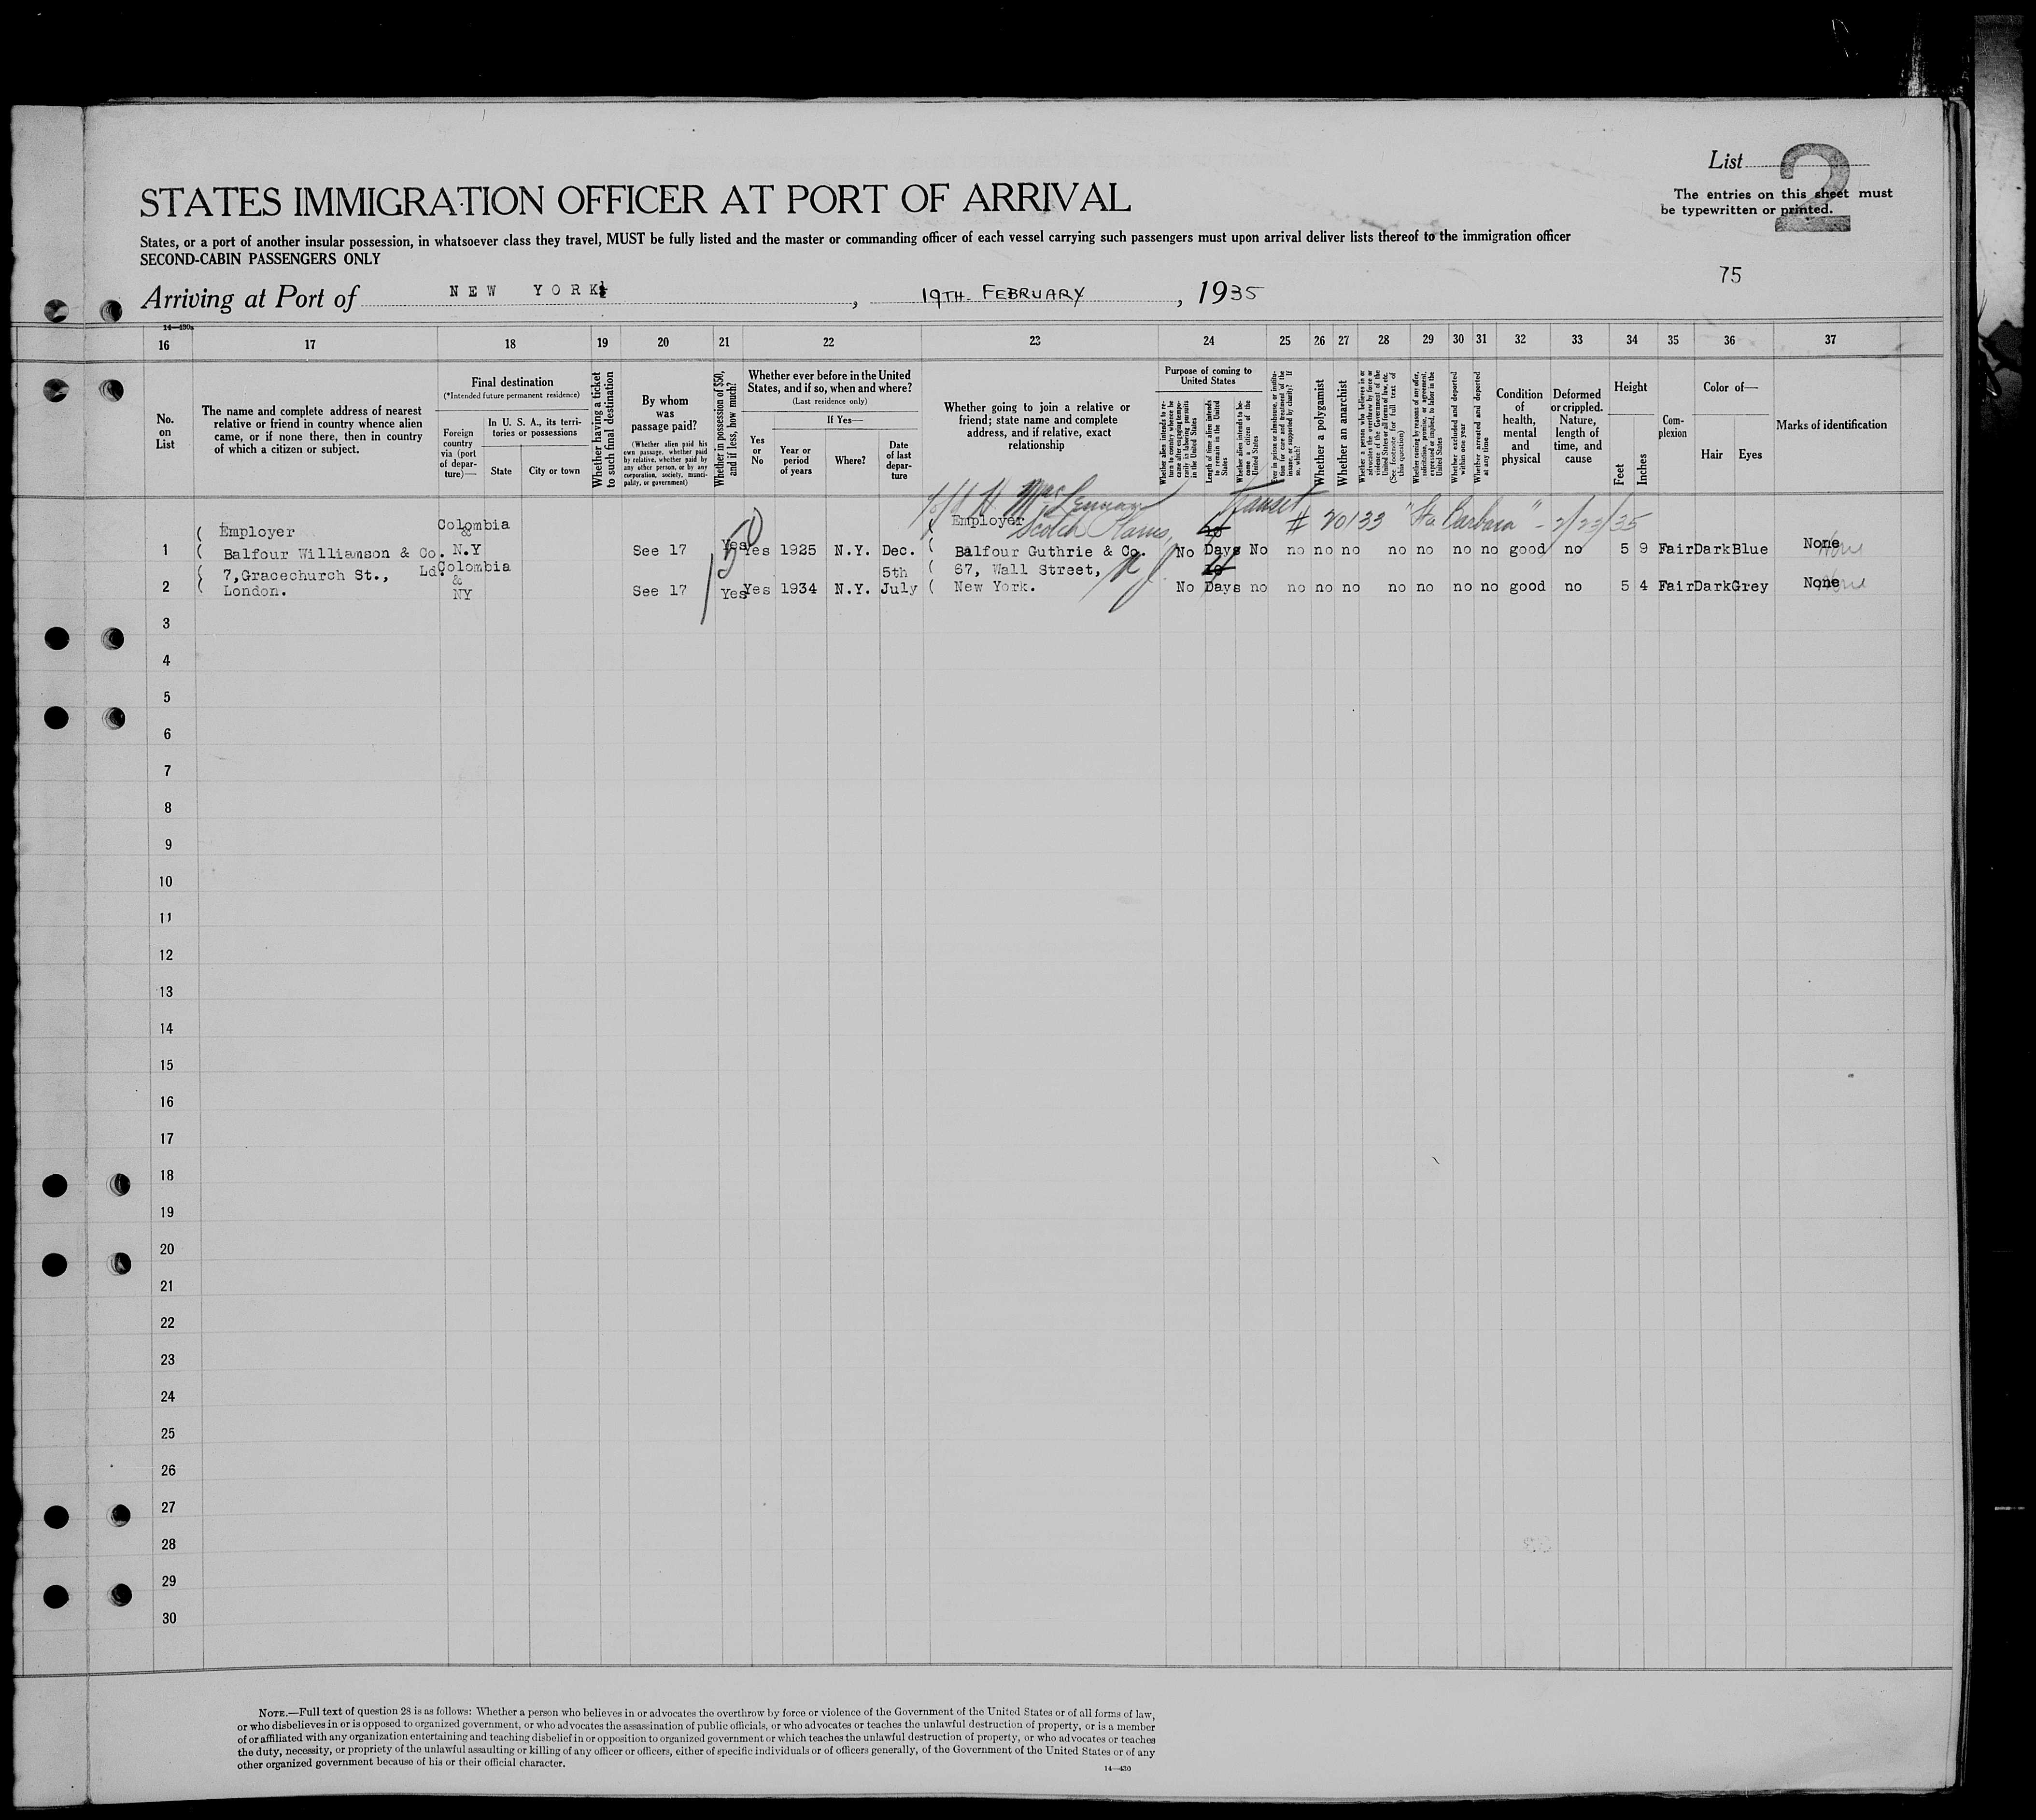 List 2
The entries on this sheet must
be typewritten or printed.
STATES IMMIGRATION OFFICER AT PORT OF ARRIVAL
States, or a port of another insular possession, in whatsoever class they travel, MUST be fully listed and the master or commanding officer of each vessel carrying such passengers must upon arrival deliver lists thereof to the immigration officer
SECOND-CABIN PASSENGERS ONLY
75
Arriving at Port of NEW YORK, 19TH. FEBRUARY, 1935
14—430a
16 17 18 19 20 21 22 23 24 25 26 27 28 29 30 31 32 33 34 35 36 37
No.
on
List
The name and complete address of nearest
relative or friend in country whence alien
came, or if none there, then in country
of which a citizen or subject.
Final destination
(*Intended future permanent residence)
Foreign
country
via (port
of depar-
ture)—
In U. S. A., its terri-
tories or possessions
State
City or town
Whether having a ticket
to such final destination
By whom
was
passage paid?
(Whether alien paid his
own passage, whether paid
by relative, whether paid by
any other person, or by any
corporation, society, munici-
pality, or government)
Whether in possession of $50,
and if less, how much?
Whether ever before in the United
States, and if so, when and where?
(Last residence only)
Yes
or
No
If Yes—
Year or
period
of years
Where?
Date
of last
depar-
ture
Whether going to join a relative or
friend; state name and complete
address, and if relative, exact
relationship
Purpose of coming to
United States
Whether alien intends to re-
turn to country whence he
came after engaging tempo-
rarily in laboring pursuits
in the United States
Length of time alien intends
to remain in the United
States
Whether alien intends to be-
come a citizen of the
United States
Ever in prison or almshouse, or institu-
tion for care and treatment of the
insane, or supported by charity? If
so, which?
Whether a polygamist
Whether an anarchist
Whether a person who believes in or
advocates the overthrow by force or
violence of the Government of the
United States or all forms of law, etc.
(See footnote for full text of
this question)
Whether coming by reasons of any offer,
solicitation, promise, or agreement,
expressed or implied, to labor in the
United States
Whether excluded and deported
within one year
Whether arrested and deported
at any time
Condition
of
health,
mental
and
physical
Deformed
or crippled.
Nature,
length of
time, and
cause
Height
Feet
Inches
Com-
plexion
Color of—
Hair
Eyes
Marks of identification
MacLennan
Transit
Scotch Plains,
N J
# 20133 "Sta Barbara" - 2/23/35
50
( Employer Colombia ( Employer 10
&
1 ( Balfour Williamson & Co. N.Y See 17 Yes Yes 1925 N.Y. Dec. ( Balfour Guthrie & Co. No Days No no no no no no no no good no 5 9 Fair Dark Blue None
( 7,Gracechurch St., Ld. Colombia 5th ( 67, Wall Street, 10
&
2 ( London. NY See 17 Yes Yes 1934 N.Y. July ( New York. No Days no no no no no no no no good no 5 4 Fair Dark Grey None
3
4
5
6
7
8
9
10
11
12
13
14
15
16
17
18
19
20
21
22
23
24
25
26
27
28
29
30
NOTE.—Full text of question 28 is as follows: Whether a person who believes in or advocates the overthrow by force or violence of the Government of the United States or of all forms of law,
or who disbelieves in or is opposed to organized government, or who advocates the assassination of public officials, or who advocates or teaches the unlawful destruction of property, or is a member
of or affiliated with any organization entertaining and teaching disbelief in or opposition to organized government or which teaches the unlawful destruction of property, or who advocates or teaches
the duty, necessity, or propriety of the unlawful assaulting or killing of any officer or officers, either of specific individuals or of officers generally, of the Government of the United States or of any
other organized government because of his or their official character.
14—430